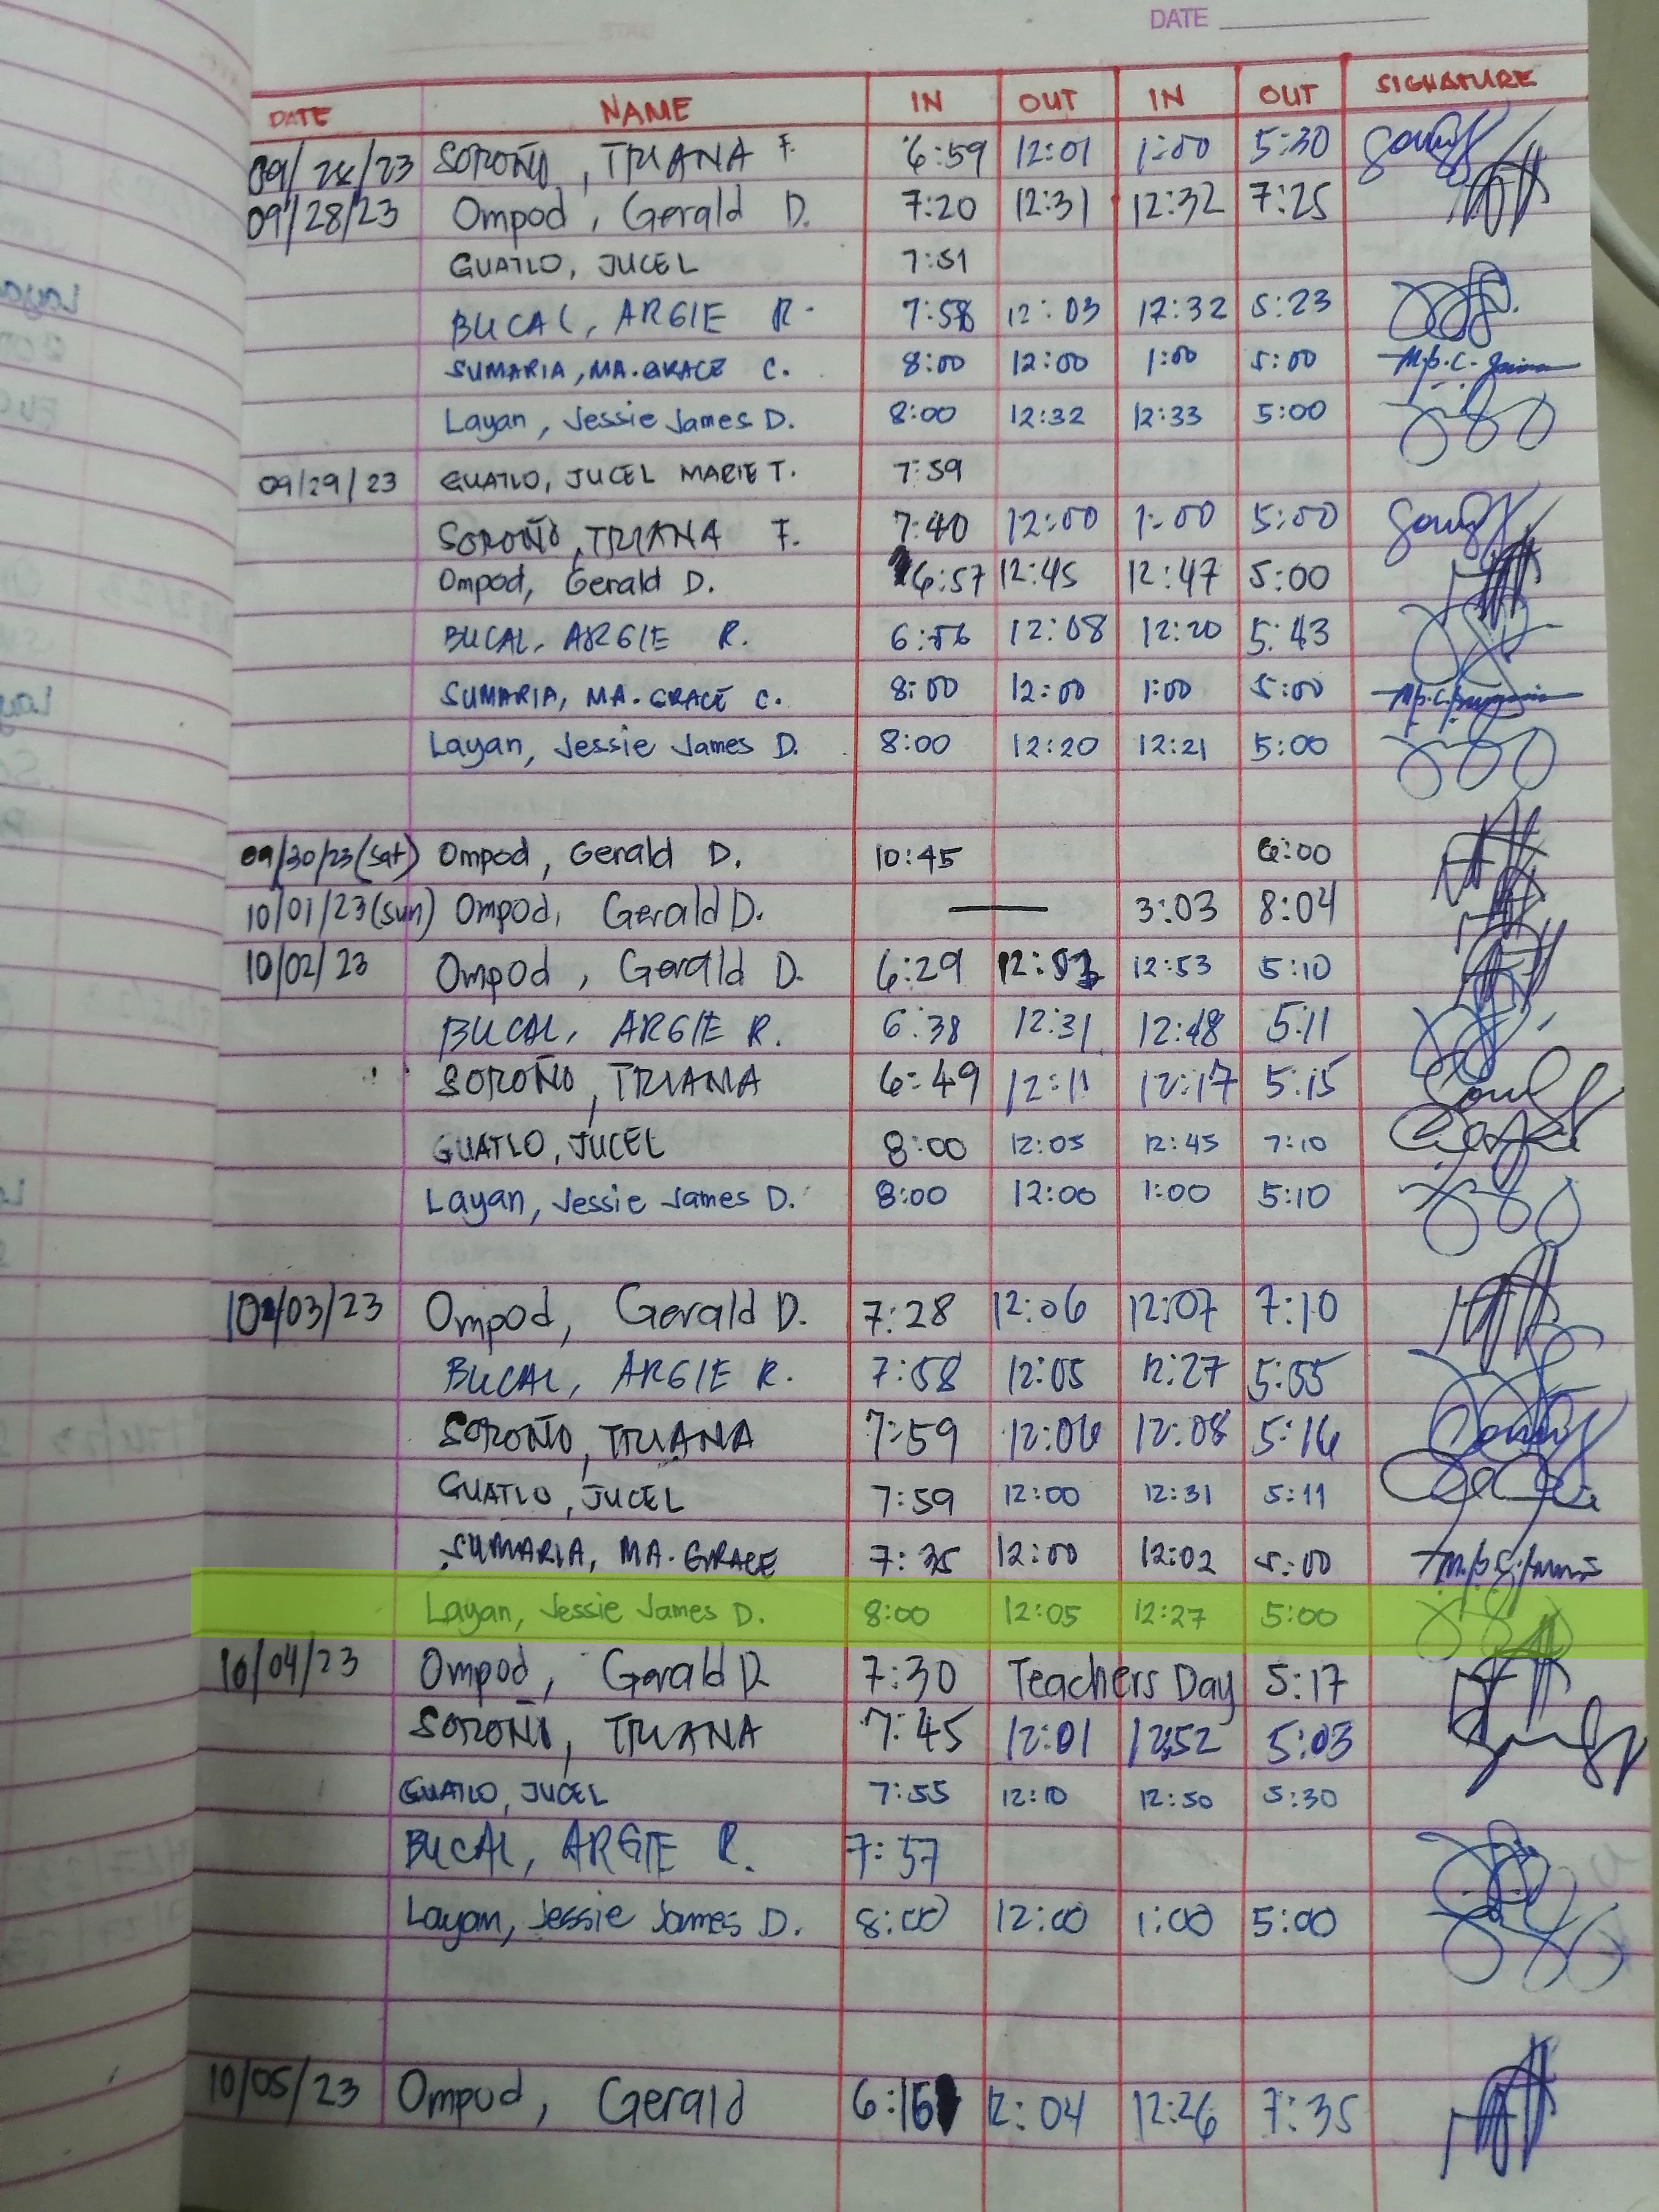 DATE
DATE NAME IN OUT IN OUT SIGNATURE
09/28/23 SOROÑO, TRIANA F. 6:59 12:01 1:00 5:30
09/28/23 Ompod, Gerald D. 7:20 12:31 12:32 7:25
GUATLO, JUCEL 7:51
BUCAL, ARGIE R. 7:58 12:03 12:32 5:23
SUMARIA, MA. GRACE C. 8:00 12:00 1:00 5:00
Layan, Jessie James D. 8:00 12:32 12:33 5:00
09/29/23 GUATLO, JUCEL MARIE T. 7:59
SOROÑO, TRIANA F. 7:40 12:00 1:00 5:00
Ompod, Gerald D. 6:57 12:45 12:47 5:00
BUCAL, ARGIE R. 6:56 12:08 12:20 5:43
SUMARIA, MA. GRACE C. 8:00 12:00 1:00 5:00
Layan, Jessie James D. 8:00 12:20 12:21 5:00
09/30/23 (Sat) Ompod, Gerald D. 10:45 6:00
10/01/23 (sun) Ompod, Gerald D. — 3:03 8:04
10/02/23 Ompod, Gerald D. 6:29 12:53 5:10
BUCAL, ARGIE R. 6:38 12:31 12:48 5:11
SOROÑO, TRIANA 6:49 12:11 12:17 5:15
GUATLO, JUCEL 8:00 12:05 12:45 7:10
Layan, Jessie James D. 8:00 12:00 1:00 5:10
10/03/23 Ompod, Gerald D. 7:28 12:06 12:07 7:10
BUCAL, ARGIE R. 7:58 12:05 12:27 5:55
SOROÑO, TRIANA 7:59 12:06 12:08 5:16
GUATLO, JUCEL 7:59 12:00 12:31 5:11
SUMARIA, MA. GRACE 7:35 12:00 12:02 5:00
Layan, Jessie James D. 8:00 12:05 12:27 5:00
10/04/23 Ompod, Gerald D. 7:30 Teachers Day 5:17
SOROÑO, TRIANA 7:45 12:01 12:52 5:03
GUATLO, JUCEL 7:55 12:10 12:50 5:30
BUCAL, ARGIE R. 7:57
Layan, Jessie James D. 8:00 12:00 1:00 5:00
10/05/23 Ompod, Gerald 6:16 12:04 12:26 7:35